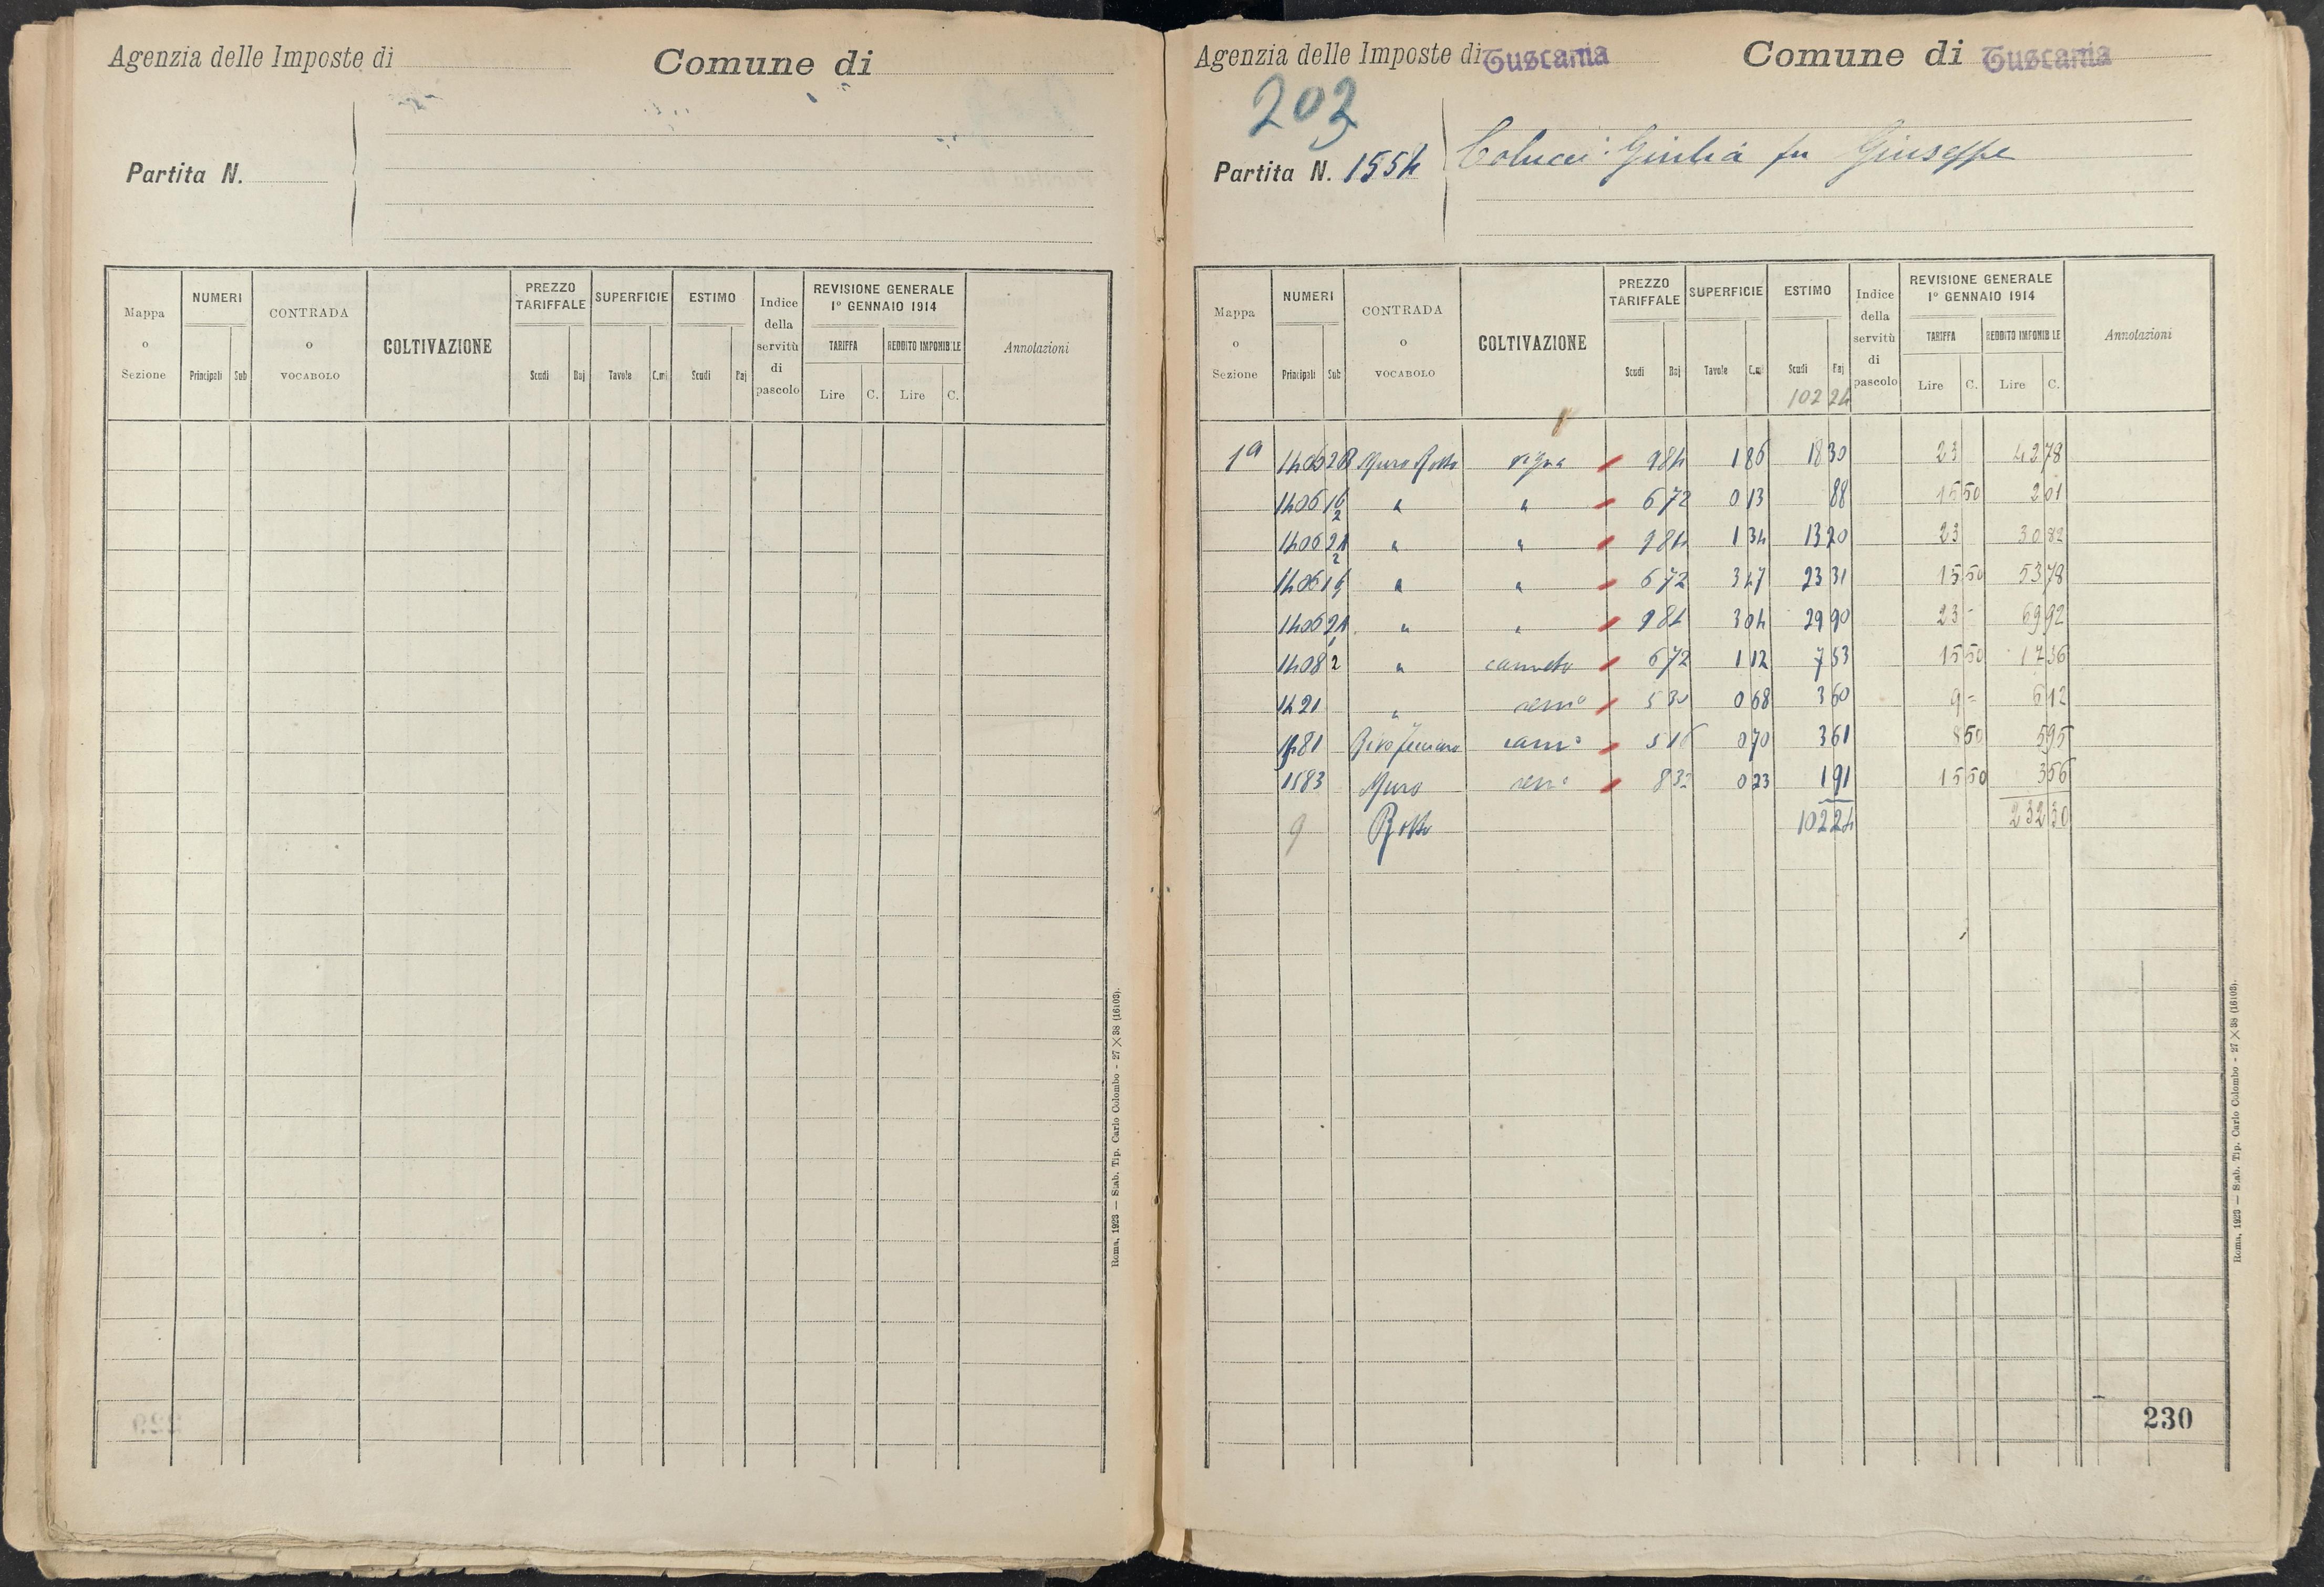 Agenzia delle Imposte di
Comune di
Partita N.
Mappa o Sezione
NUMERI
Principali Sub
CONTRADA o VOCABOLO
COLTIVAZIONE
PREZZO TARIFFALE
Scudi Baj
SUPERFICIE
Tavole C.mi
ESTIMO
Scudi Baj
Indice della servitù di pascolo
REVISIONE GENERALE
1º GENNAIO 1914
TARIFFA
Lire C.
REDDITO IMPONIBILE
Lire C.
Annotazioni
Roma, 1923 — Stab. Tip. Carlo Colombo - 27 × 38 (16103).
Agenzia delle Imposte di Tuscania
Comune di Tuscania
203
Partita N. 1554
Colucci Giulia fu Giuseppe
Mappa o Sezione
NUMERI
Principali Sub
CONTRADA o VOCABOLO
COLTIVAZIONE
PREZZO TARIFFALE
Scudi Baj
SUPERFICIE
Tavole C.mi
ESTIMO
Scudi Baj
102 24
Indice della servitù di pascolo
REVISIONE GENERALE
1º GENNAIO 1914
TARIFFA
Lire C.
REDDITO IMPONIBILE
Lire C.
Annotazioni
1ª 1406 Muro Rotto vigna 9 84 1 86 18 30 23 42 78
1406 " " 6 72 0 13 88 15 50 2 01
1406 " " 9 84 1 34 13 20 23 30 82
1406 " " 6 72 3 47 23 31 15 50 53 78
1406 " " 9 84 3 04 29 90 23 - 69 92
1408 2 " canneto 6 72 1 12 7 53 15 50 17 36
1421 " semº 5 30 0 68 3 60 9 = 6 12
cannº 5 16 0 70 3 61 8 50 5 95
1583 Muro semº 8 32 0 23 1 91 15 50 3 56
9 Rotto 102 24 232 30
230
Roma, 1923 — Stab. Tip. Carlo Colombo - 27 × 38 (16103).